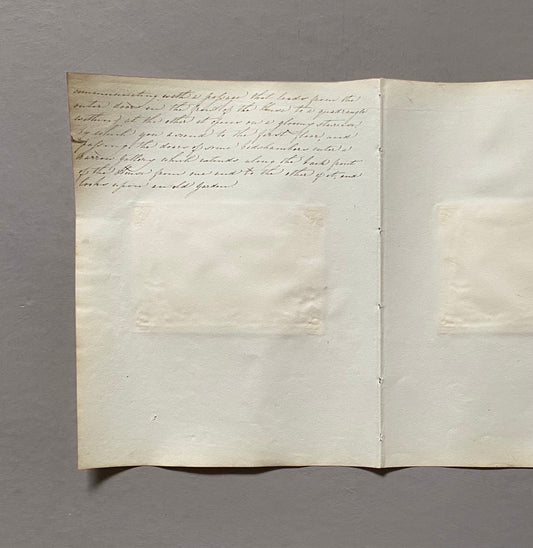 communicating with a passage that leads from the
outer door in the front of the House to a quadrangle
within, at the other it opens on a gloomy staircase
by which you ascend to the first floor, and
passing the doors of some bedchambers enter a
narrow Gallery which extends along the back part
of the House from one end to the other of it, and
looks upon an old Garden